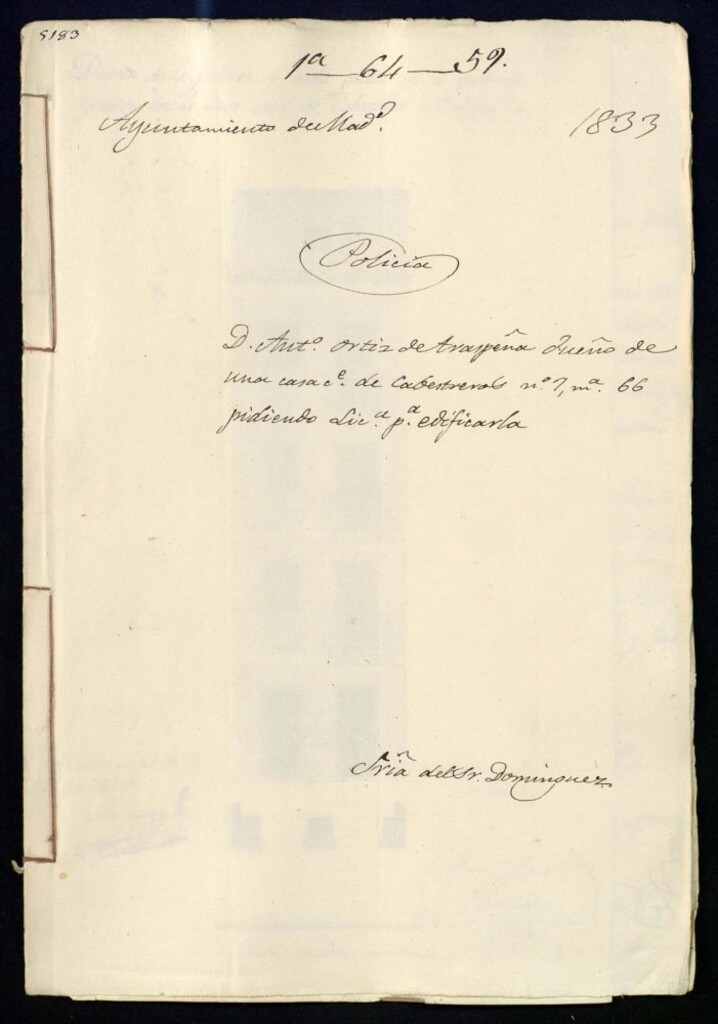 5183
1ª — 64 — 59.
Ayuntamiento de Madᵈ.
1833
Policía
D. Antº. Ortiz de dueño de
una casa cᵉ. de Cabestreros nº. 7, mª. 66
pidiendo Licª. pª. edificarla
Sriá del Sr. Dominguez